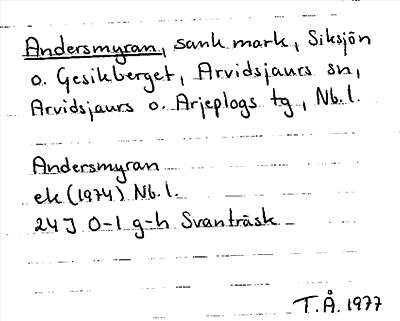 Andersmyran, sank mark, Siksjön
o. Gesikberget, Arvidsjaurs sn,
Arvidsjaurs o. Arjeplogs tg., Nb.l.
Andersmyran
ek (1974) Nb.l.
24J 0-1 g-h Svanträsk
T.Å. 1977